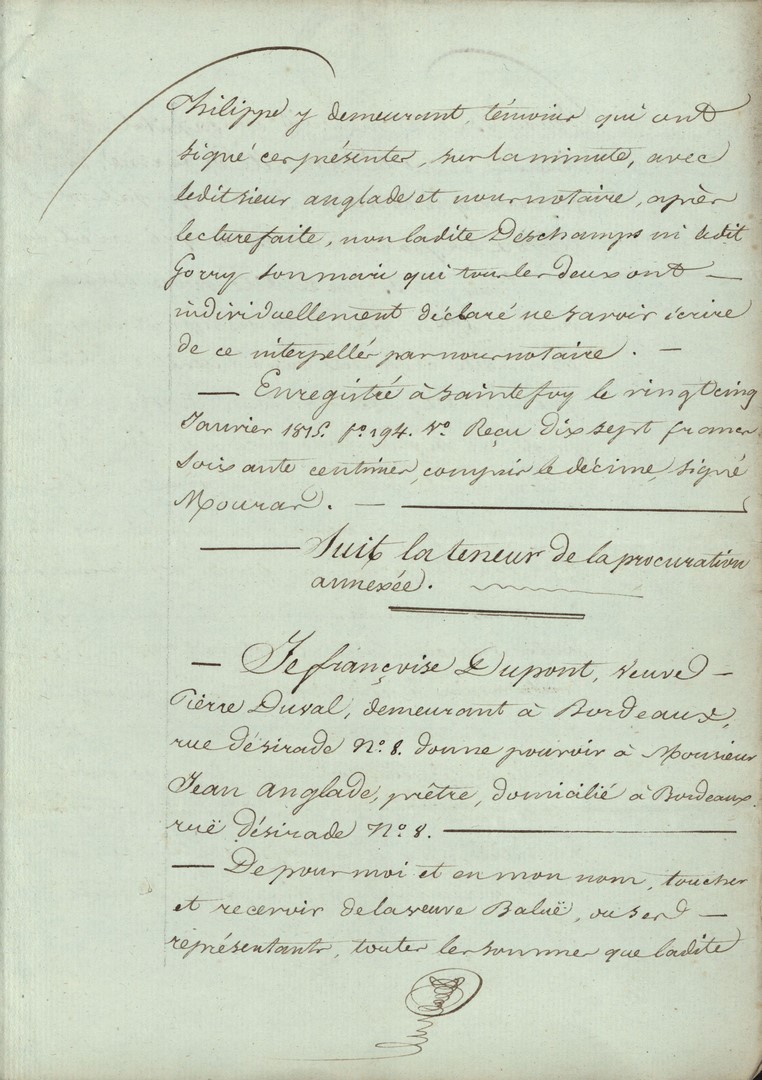 Philippe y demeurant, témoins qui ont
signé ces présentes, sur la minute, avec
ledit sieur anglade et nous notaire, après
lecture faite, non ladite Deschamps ni ledit
Gorry son mari qui tous les deux ont —
individuellement déclaré ne savoir écrire
de ce interpellés par nous notaire. —
— Enregistré à Saintefoy le vingt cinq
Janvier 1815. f.º 194. Vº. Reçu dix sept francs
soixante centimes, compris le décime, signé
Mourad. —
— Suit la teneur de la procuration
annexée.
— Je françoise Dupont, veuve —
Pierre Duval, demeurant à Bordeaux,
rue désirade Nº. 8. donne pouvoir à Monsieur
Jean anglade, prêtre, domicilié à Bordeaux.
ruë désirade Nº. 8. —
— De pour moi et en mon nom, toucher
et recevoir de la veuve Baluë, ou ses —
représentants, toutes les sommes que ladite